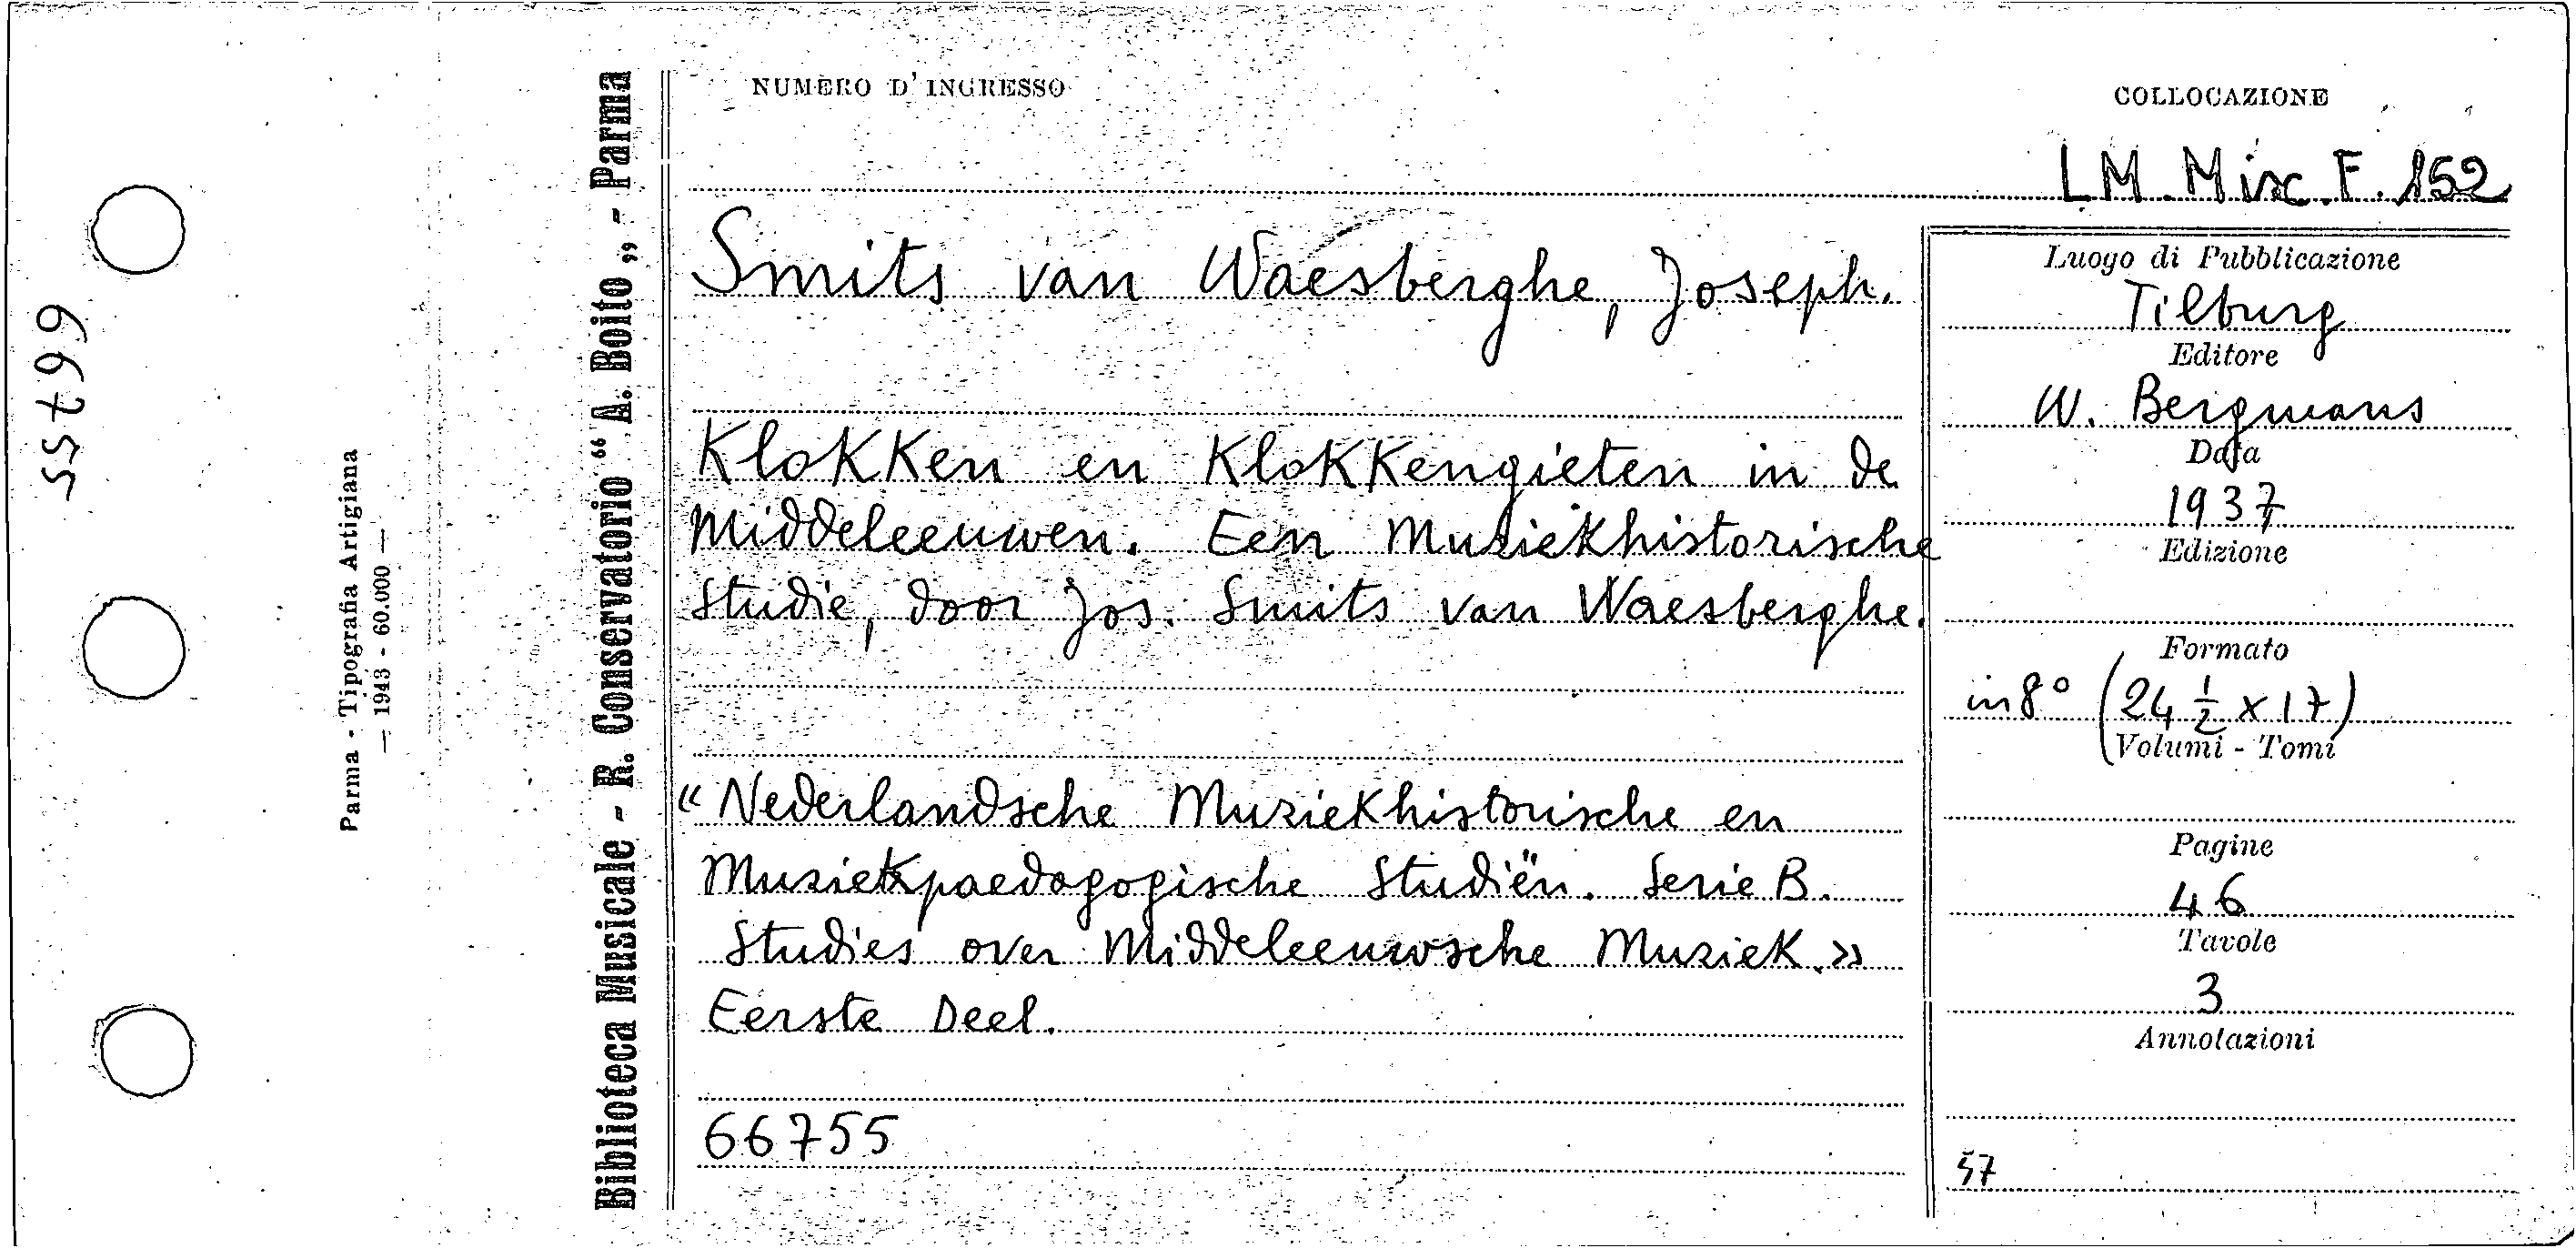 66755
Parma - Tipografia Artigiana
— 1943 - 60.000 —
Biblioteca Musicale - R. Conservatorio “ A. Boito „ - Parma
NUMERO D' INGRESSO
COLLOCAZIONE
LM. Misc. F. 152
Smits van Waesberghe, Joseph.
Klokken en Klokkengieten in de
Middeleeuwen. Een Muziekhistorische
studie, door Jos. Smits van Waesberghe.
« Nederlandsche Muziekhistorische en
Muziekpaedagogische Studiën. Serie B.
Studies over Middeleeuwsche Muziek. »
Eerste Deel.
66755
Luogo di Pubblicazione
Tilburg
Editore
W. Bergmans
Data
1937
Edizione
Formato
in 8° (24 ½ x 17)
Volumi - Tomi
Pagine
46
Tavole
3
Annotazioni
57